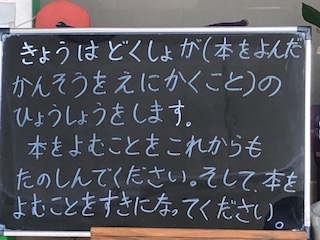 きょうはどくしょが(本をよんだ
かんそうをえにかくこと)の
ひょうしょうをします。
本をよむことをこれからも
たのしんでください。そして、本を
よむことをすきになってください。